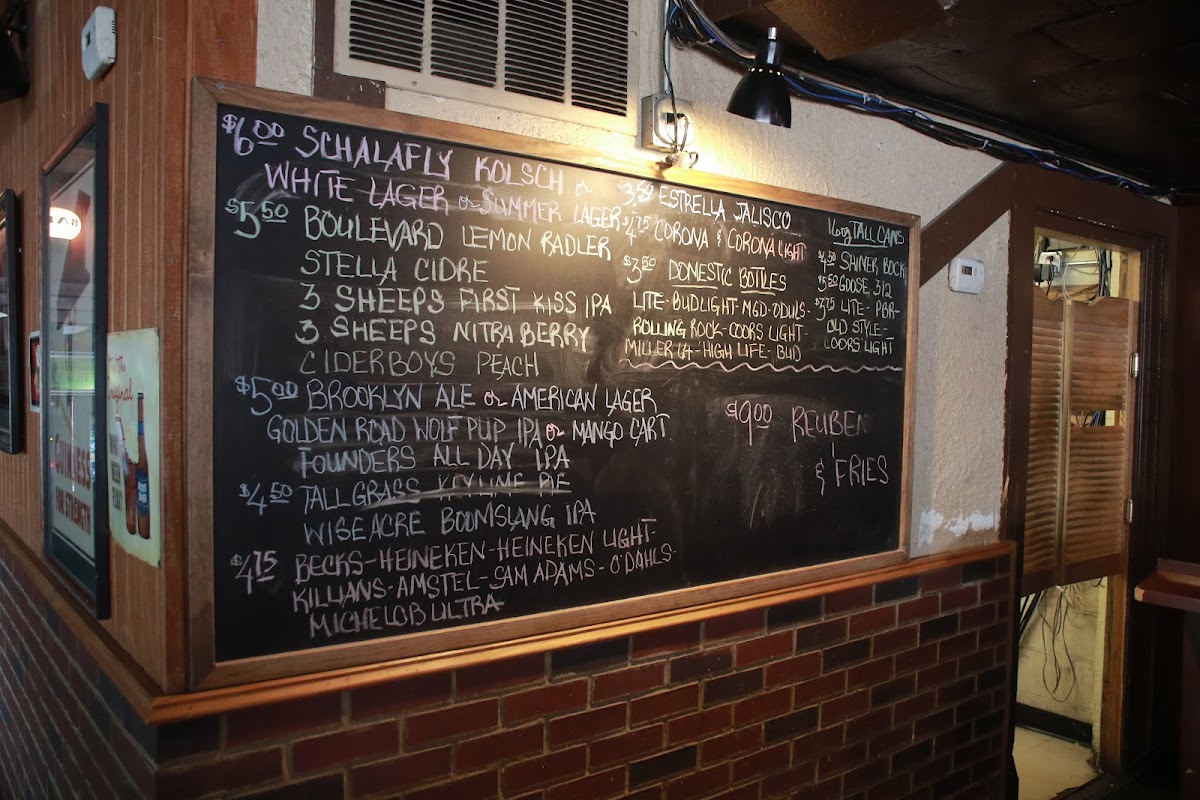 $6.00 SCHALAFLY KOLSCH or
WHITE LAGER or SUMMER LAGER
$5.50 BOULEVARD LEMON RADLER
STELLA CIDRE
3 SHEEPS FIRST KISS IPA
3 SHEEPS NITRA BERRY
CIDERBOYS PEACH
$5.00 BROOKLYN ALE or AMERICAN LAGER
GOLDEN ROAD WOLF PUP IPA or MANGO CART
FOUNDERS ALL DAY IPA
$4.50 TALLGRASS KEY LIME PIE
WISEACRE BOOMSLANG IPA
$4.75 BECKS-HEINEKEN-HEINEKEN LIGHT-
KILLIANS-AMSTEL-SAM ADAMS-O'DAHLS-
MICHELOB ULTRA
3.50 ESTRELLA JALISCO
$4.75 CORONA & CORONA LIGHT
$3.50 DOMESTIC BOTTLES
LITE-BUDLIGHT-MGD-ODULS-
ROLLING ROCK-COORS LIGHT-
MILLER 64-HIGH LIFE-BUD
16oz TALL CANS
$4.50 SHINER BOCK
$5.50 GOOSE 312
$3.75 LITE-PBR-
OLD STYLE-
COORS LIGHT
$9.00 REUBEN
& FRIES
GUINNESS
FOR STRENGTH
The
Original